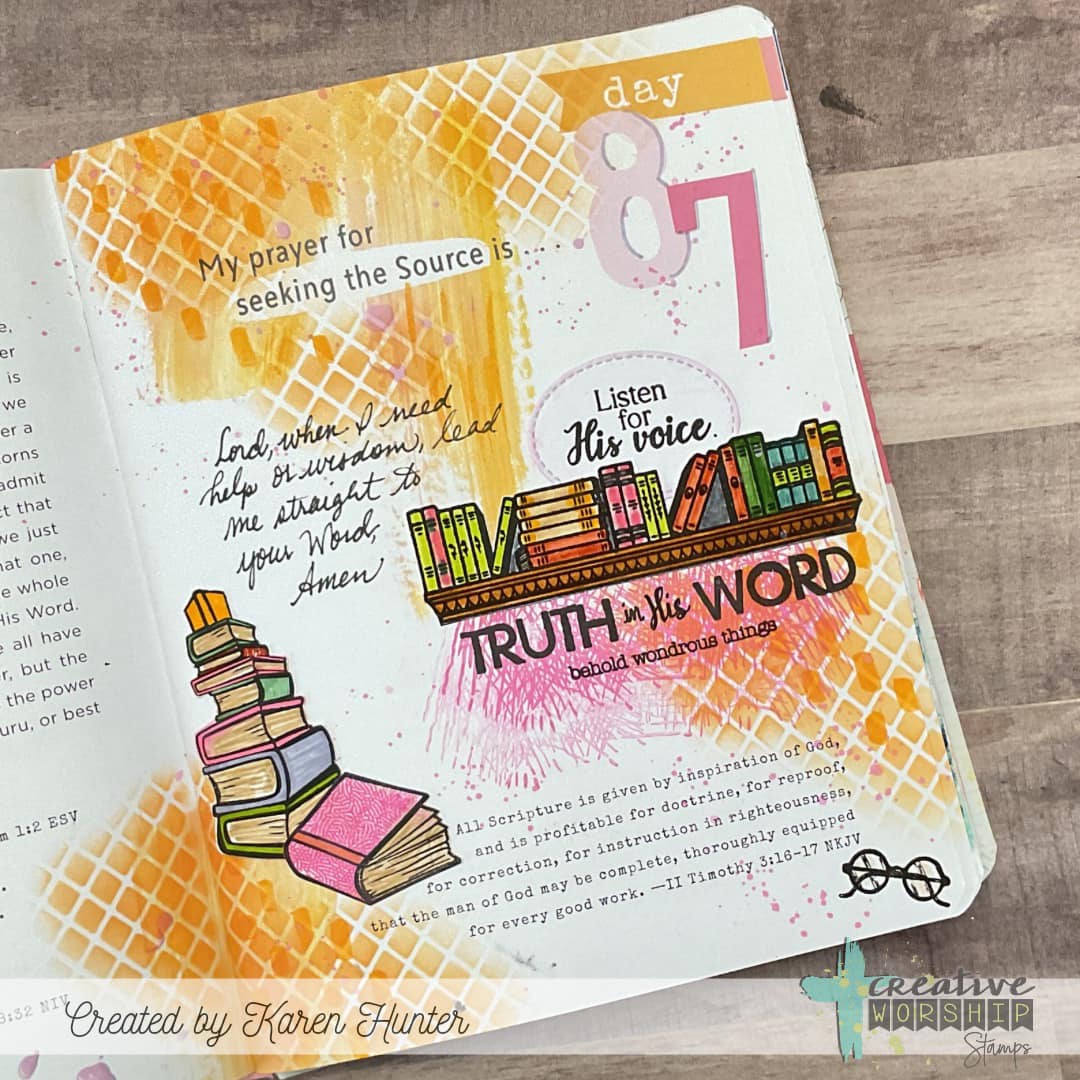 day
87
My prayer for
seeking the Source is ....
Listen
for
His voice.
Lord, when I need
help or wisdom, lead
me straight to
your Word,
Amen
TRUTH in His WORD
behold wondrous things
All Scripture is given by inspiration of God,
and is profitable for doctrine, for reproof,
for correction, for instruction in righteousness,
that the man of God may be complete, thoroughly equipped
for every good work. —II Timothy 3:16-17 NKJV
is
we
er a
admit
ct that
we just
hat one,
e whole
His Word.
e all have
er, but the
the power
uru, or best
m 1:2 ESV
:32 NIV
Created by Karen Hunter
creative
WORSHIP
Stamps